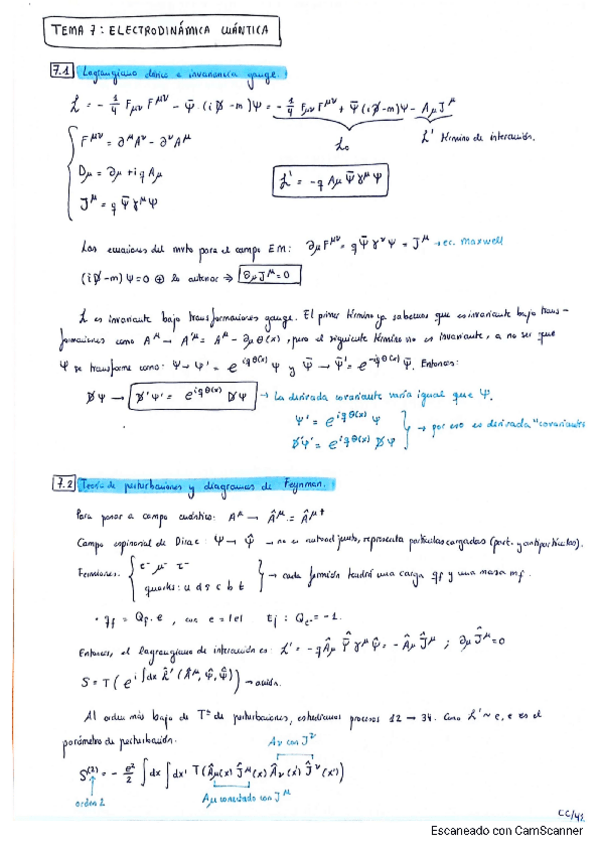 TEMA 7: ELECTRODINÁMICA CUÁNTICA
7.1 Lagrangiano dérico e invariancia gauge.
ℒ = - 1/4 Fμν F^μν - Ψ̄ (i D̸ - m) Ψ = - 1/4 Fμν F^μν + Ψ̄ (i ∂̸ - m) Ψ - Aμ J^μ
ℒ₀ ℒ' término de interacción.
F^μν = ∂^μ A^ν - ∂^ν A^μ
Dμ = ∂μ + i q Aμ
J^μ = q Ψ̄ γ^μ Ψ
ℒ' = - q Aμ Ψ̄ γ^μ Ψ
Las ecuaciones del mvto para el campo EM: ∂μ F^μν = q Ψ̄ γ^ν Ψ = J^μ → ec. Maxwell
(i D̸ - m) Ψ = 0 ⊕ lo anterior ⇒ ∂μ J^μ = 0
ℒ es invariante bajo transformaciones gauge. El primer término ya sabemos que es invariante bajo trans-
formaciones como A^μ → A'^μ = A^μ - ∂μ θ(x), pero el siguiente término no es invariante, a no ser que
Ψ se transforme como: Ψ → Ψ' = e^{iqθ(x)} Ψ y Ψ̄ → Ψ̄' = e^{-iqθ(x)} Ψ̄. Entonces:
D̸Ψ → D̸'Ψ' = e^{iqθ(x)} D̸Ψ → La derivada covariante varía igual que Ψ.
Ψ' = e^{iqθ(x)} Ψ
D̸'Ψ' = e^{iqθ(x)} D̸Ψ → por eso es derivada "covariante
7.2 Teoría de perturbaciones y diagramas de Feynman.
Para pasar a campo cuántico: A^μ → Â^μ = Â^μ†
Campo espinorial de Dirac: Ψ → Ψ̂ → no es autoadjunto, representa partículas cargadas (part. y antipartículas).
Fermiones. { e⁻ μ⁻ τ⁻
quarks: u d s c b t } → cada fermión tendrá una carga qf y una masa mf.
· qf = Qf · e, con e = |e| Ej: Qe⁻ = -1.
Entonces, el lagrangiano de interacción es: ℒ' = - q Âμ Ψ̄̂ γ^μ Ψ̂ = - Âμ Ĵ^μ ; ∂μ Ĵ^μ = 0
S = T ( e^{i ∫dx ℒ̂' (Â^μ, Ψ̂, Ψ̄̂)} ) → acción.
Al orden más bajo de Tª de perturbaciones, estudiamos procesos 12 → 34. Como ℒ' ~ e, e es el
parámetro de perturbación.
Aν con J^ν
S^(2) = - e²/2 ∫dx ∫dx' T(Âμ(x) Ĵ^μ(x) Âν(x') Ĵ^ν(x'))
orden 2 Aμ conectado con J^μ
Escaneado con CamScanner